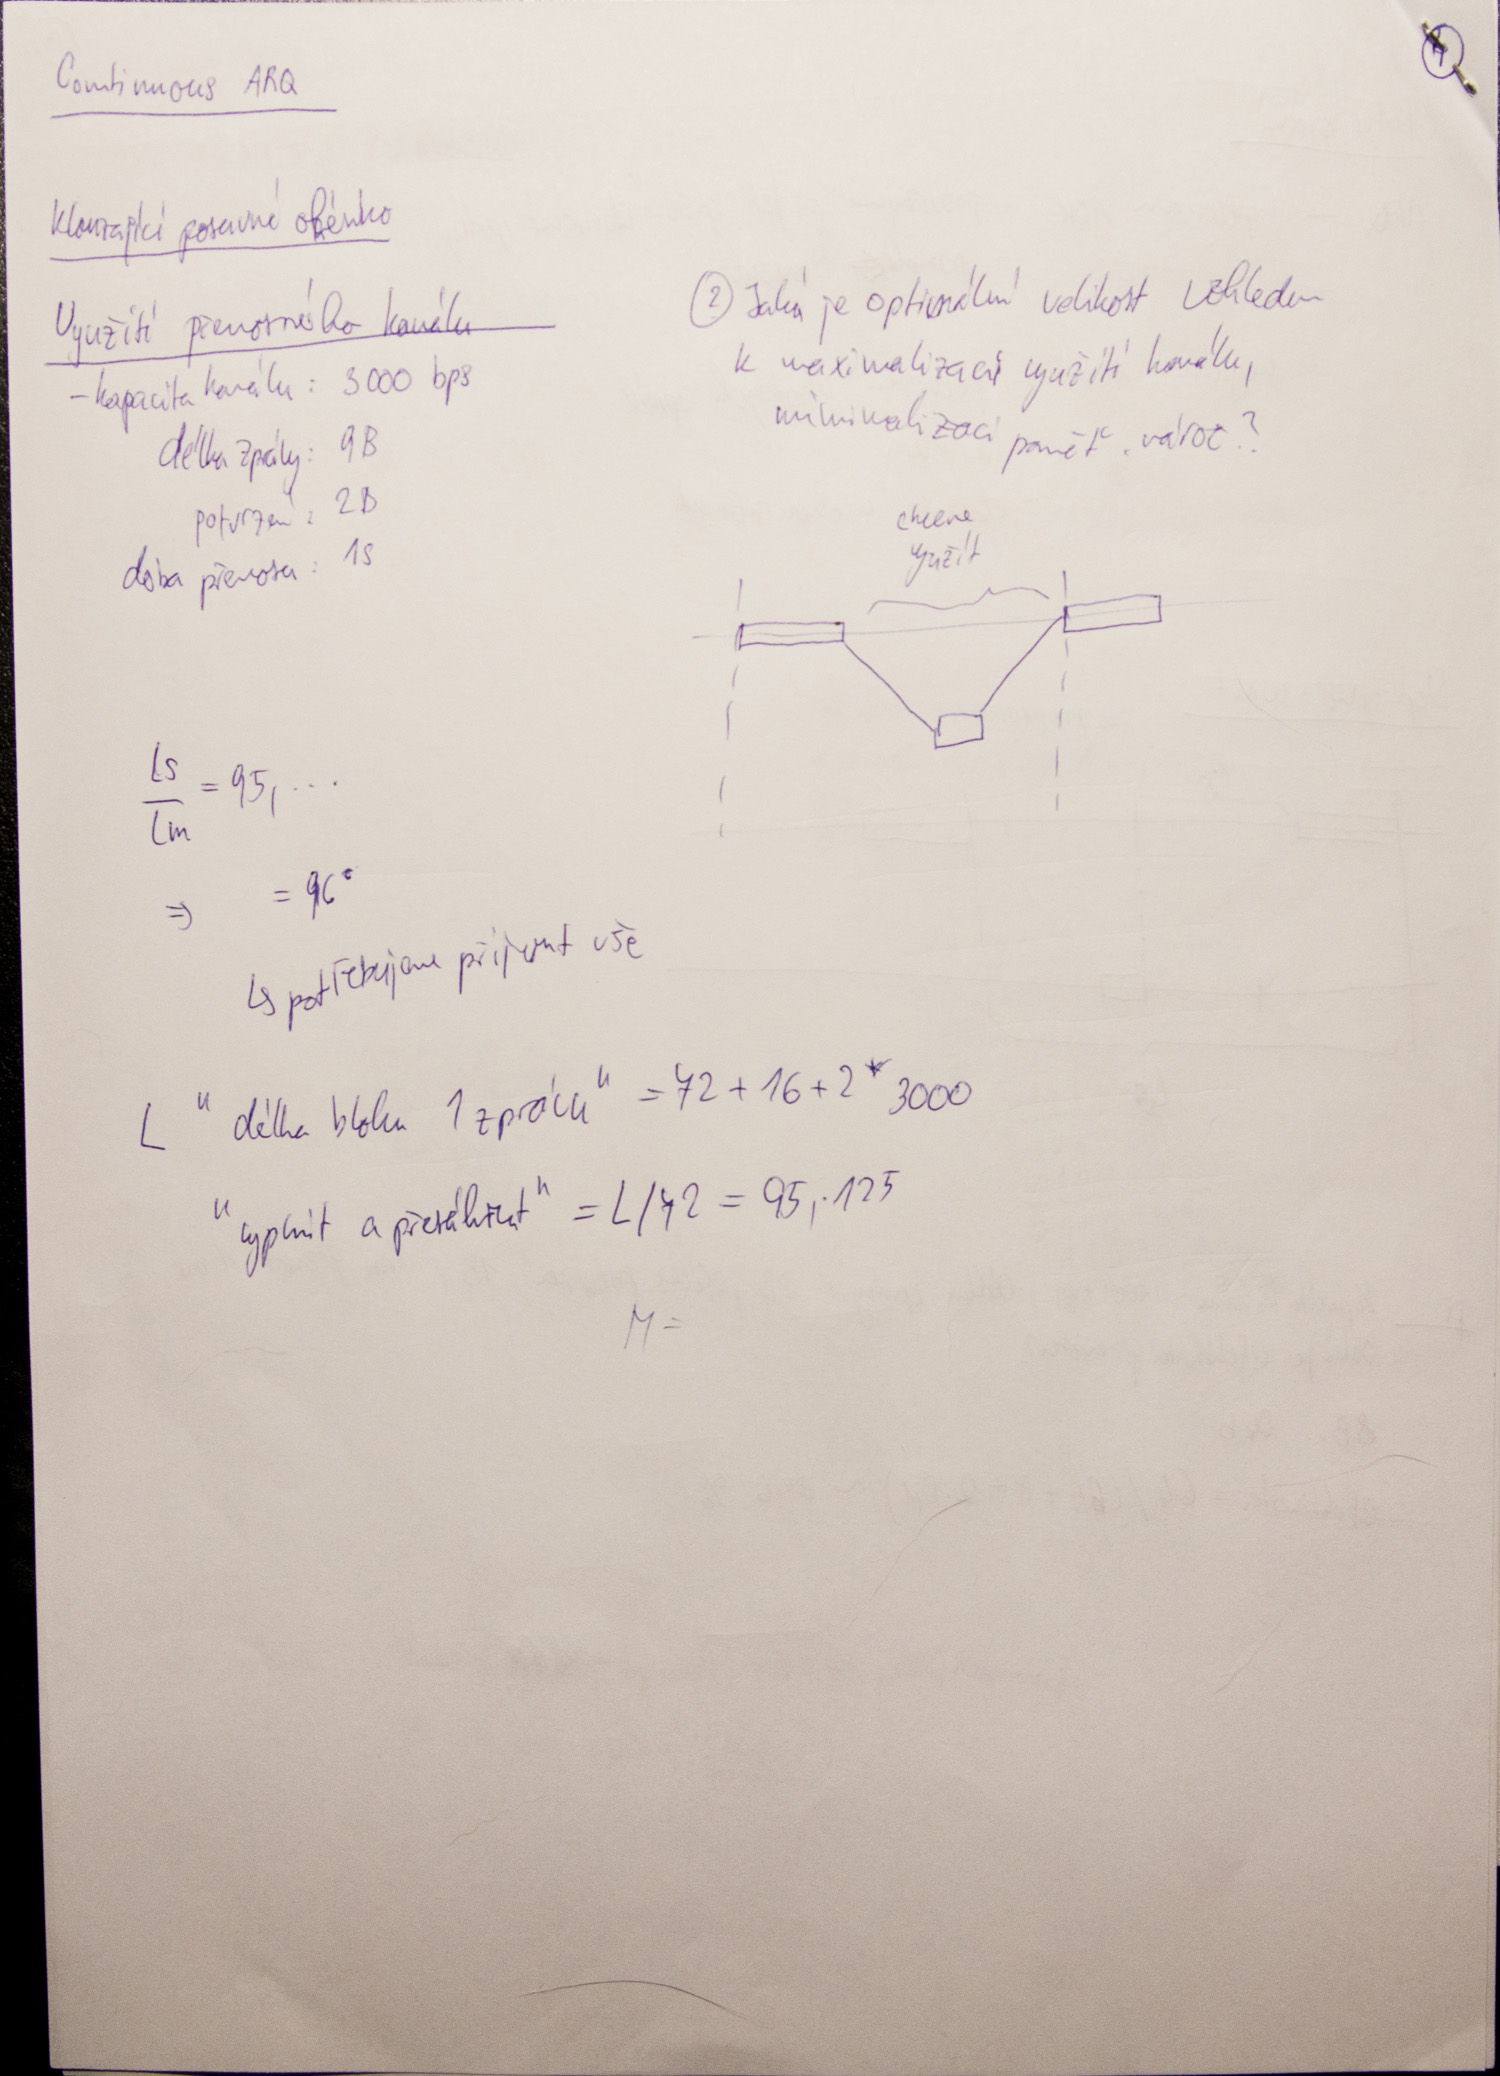 Continuous ARQ
4
Klouzající posuvné okénko
Využití přenosného kanálu
- kapacita kanálu : 3000 bps
délka zprávy : 9B
potvrzení : 2B
doba přenosu : 1s
② Jaká je optimální velikost vzhledem
k maximalizaci využití kanálu,
minimalizaci paměť. nároč ?
chceme
využít
Ls
Lm
= 95, ...
⇒ = 96
↳ potřebujeme přijmout vše
L " délka bloku 1 zprávu " = 72 + 16 + 2 * 3000
" vyplnit a přesáhnout " = L/72 = 95,.125
M =